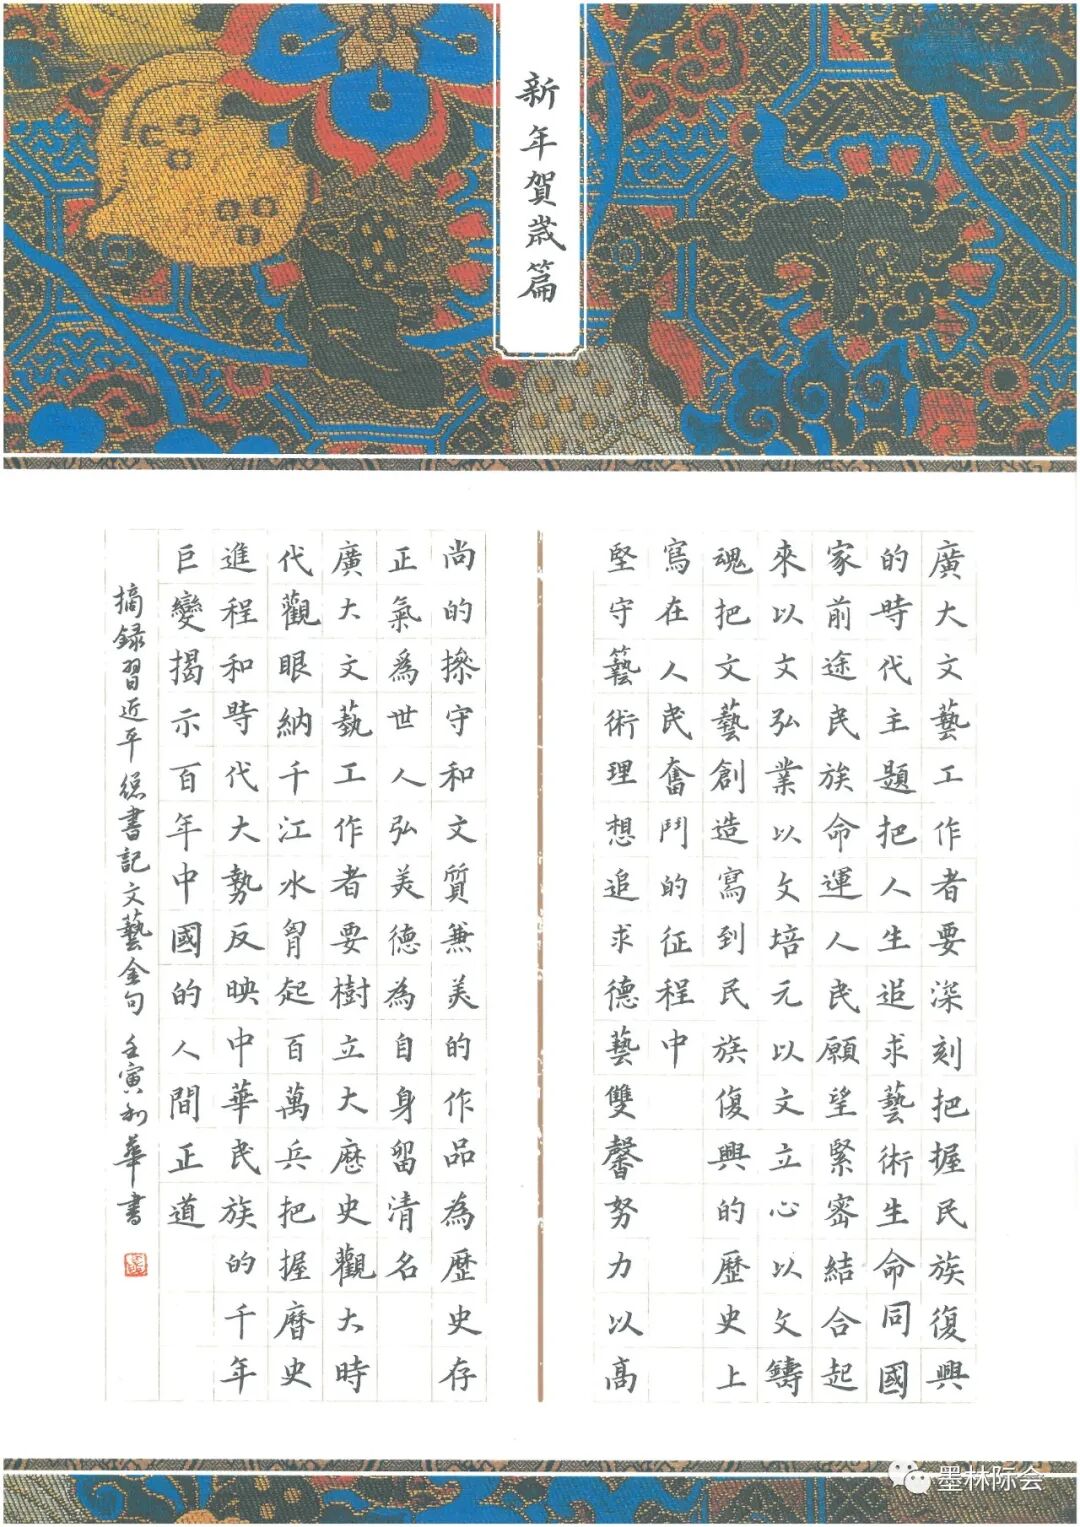 新年賀歲篇
廣大文藝工作者要深刻把握民族復興
的時代主題把人生追求藝術生命同國
家前途民族命運人民願望緊密結合起
來以文弘業以文培元以文立心以文鑄
魂把文藝創造寫到民族復興的歷史上
寫在人民奮鬥的征程中
堅守藝術理想追求德藝雙馨努力以高
尚的操守和文質兼美的作品為歷史存
正氣為世人弘美德為自身留清名
廣大文藝工作者要樹立大歷史觀大時
代觀眼納千江水胷起百萬兵把握曆史
進程和時代大勢反映中華民族的千年
巨變揭示百年中國的人間正道
摘録習近平總書記文藝金句 壬寅利華書
墨林际会